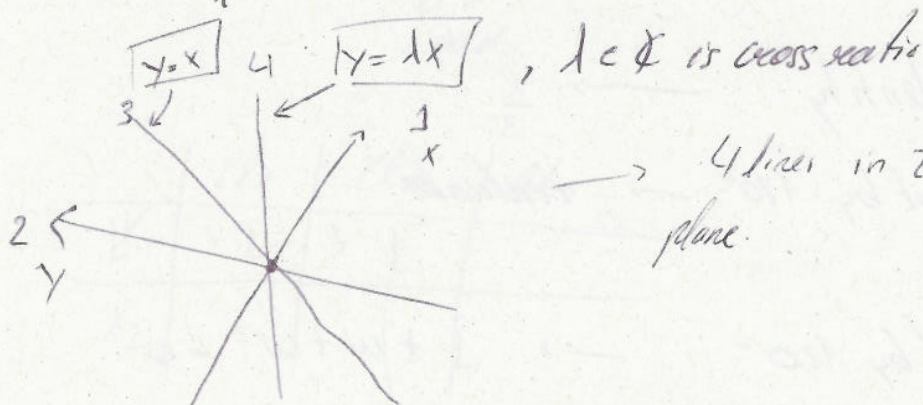 y=x 4 y=λx , λ∈ℂ is cross ratio
3 1
x
→ 4 lines in 2
plane.
2
y